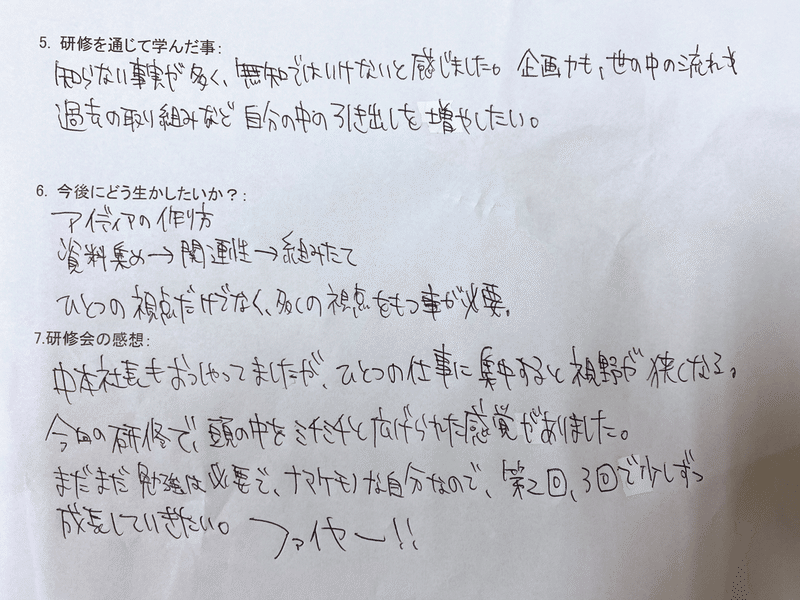 5. 研修を通じて学んだ事:
知らない事実が多く、無知ではいけないと感じました。企画力も、世の中の流れも
過去の取り組みなど自分の中の引き出しを増やしたい。
6. 今後にどう生かしたいか？:
アイディアの作り方
資料集め→関連性→組みたて
ひとつの視点だけでなく、多くの視点をもつ事が必要。
7.研修会の感想:
中本社長もおっしゃってましたが、ひとつの仕事に集中すると視野が狭くなる。
今回の研修で、頭の中をミチミチと広げられた感覚がありました。
まだまだ勉強は必要で、ナマケモノな自分なので、第2回、3回で少しずつ
成長していきたい。 ファイヤー!!